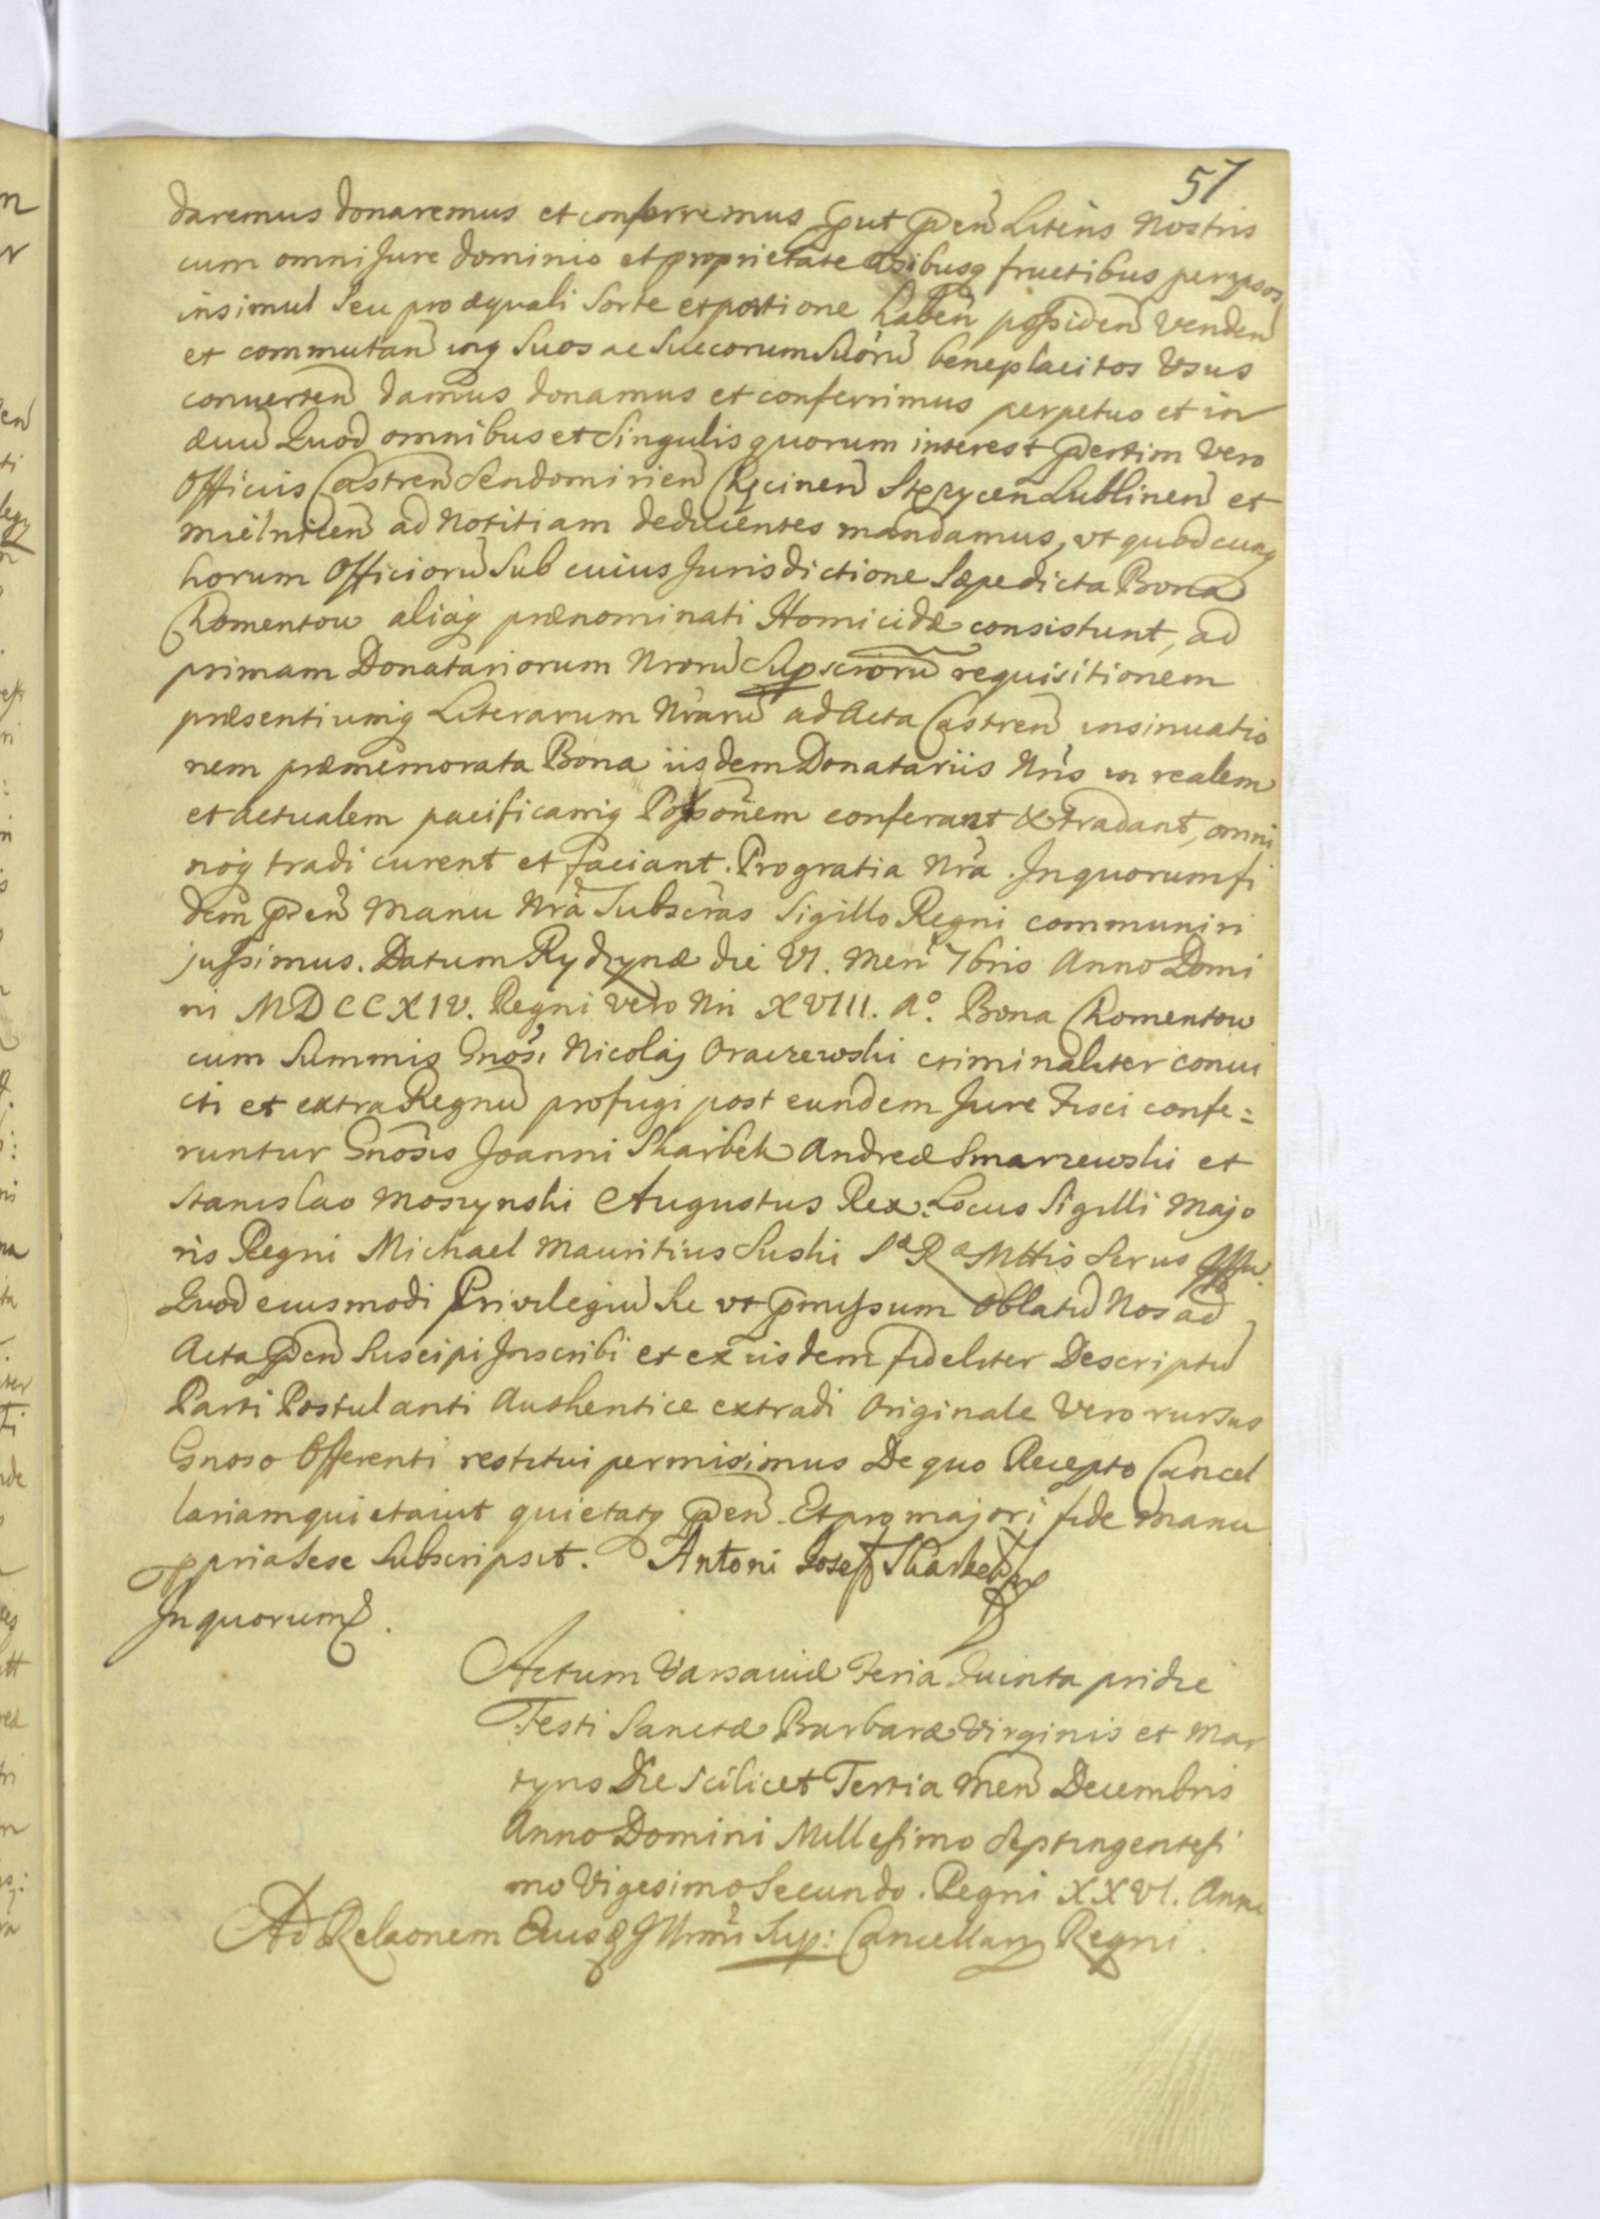 57
daremus donaremus et conferremus put pñ Literis Nostris
cum omni Jure dominio et proprietate usibusq fructibus per ipsos
insimul Seu pro æquali Sorte et portione haben possiden Venden
et commutan inq Suos ac Succorum Suorū beneplacitos Usus
conuerten damus donamus et conferrimus perpetuo et in
æuū Quod omnibus et Singulis quorum interest psertim Vero
Officiis Castren Sendomirien Chęcinen Stęzycen Lublinen et
Mielnicen ad Notitiam deducentes mandamus, vt quodcunq
horum Officiorū Sub cuius Jurisdictione Sæpedicta Bona
Chomentow aliaq prænominati Homicidæ consistunt, ad
primam Donatariorum Nrorū requisitionem
præsentiumq Literarum Nrarū ad Acta Castren insinuatio
nem præmemorata Bona iisdem Donatariis Nris in realem
et actualem pacificamq Possonem conferant & tradant, omni
noq tradi curent et faciant. Pro gratia Nra. In quorum fi
dem pñ Manu Nra Subscras Sigillo Regni communiri
jussimus. Datum Rydzynæ die VI. Men 7bris Anno Domi
ni MDCCXIV. Regni vero Nri XVIII. Aº. Bona Chomentow
cum Summis Gnosi Nicolai Oraczewski criminaliter conui
cti et extra Regnū profugi post eundem Jure Fisci confe=
runtur Gnosis Joanni Skarbek Andreæ Smarzewski et
Stanislao Moszynski Augustus Rex. Locus Sigilli Majo
ris Regni Michael Mauritius Suski Sª Rª Mttis Secrus
Quod eiusmodi Priuilegiū Se vt pmissum Oblatū Nos ad
Acta pñ Suscipi Inscribi et ex iisdem fideliter Descriptū
Parti Postulanti Authentice extradi Originale Vero rursus
Gnoso Offerenti restitui permisimus De quo Recepto Cancel
lariam quietauit quietatq pñ. Et pro majori fide Manu
ppria Sese Subscripsit. Antoni Josef Skarbek
In quorum.
Actum Varsauiæ Feria Quinta pridie
Festi Sanctæ Barbaræ Virginis et Mar
tyris Die Scilicet Tertia Men Decembris
Anno Domini Millesimo Septingentesi
mo Vigesimo Secundo. Regni XXVI. Anno
Ad Relaonem Eiusd Illrmi Sup: Cancellarij Regni.